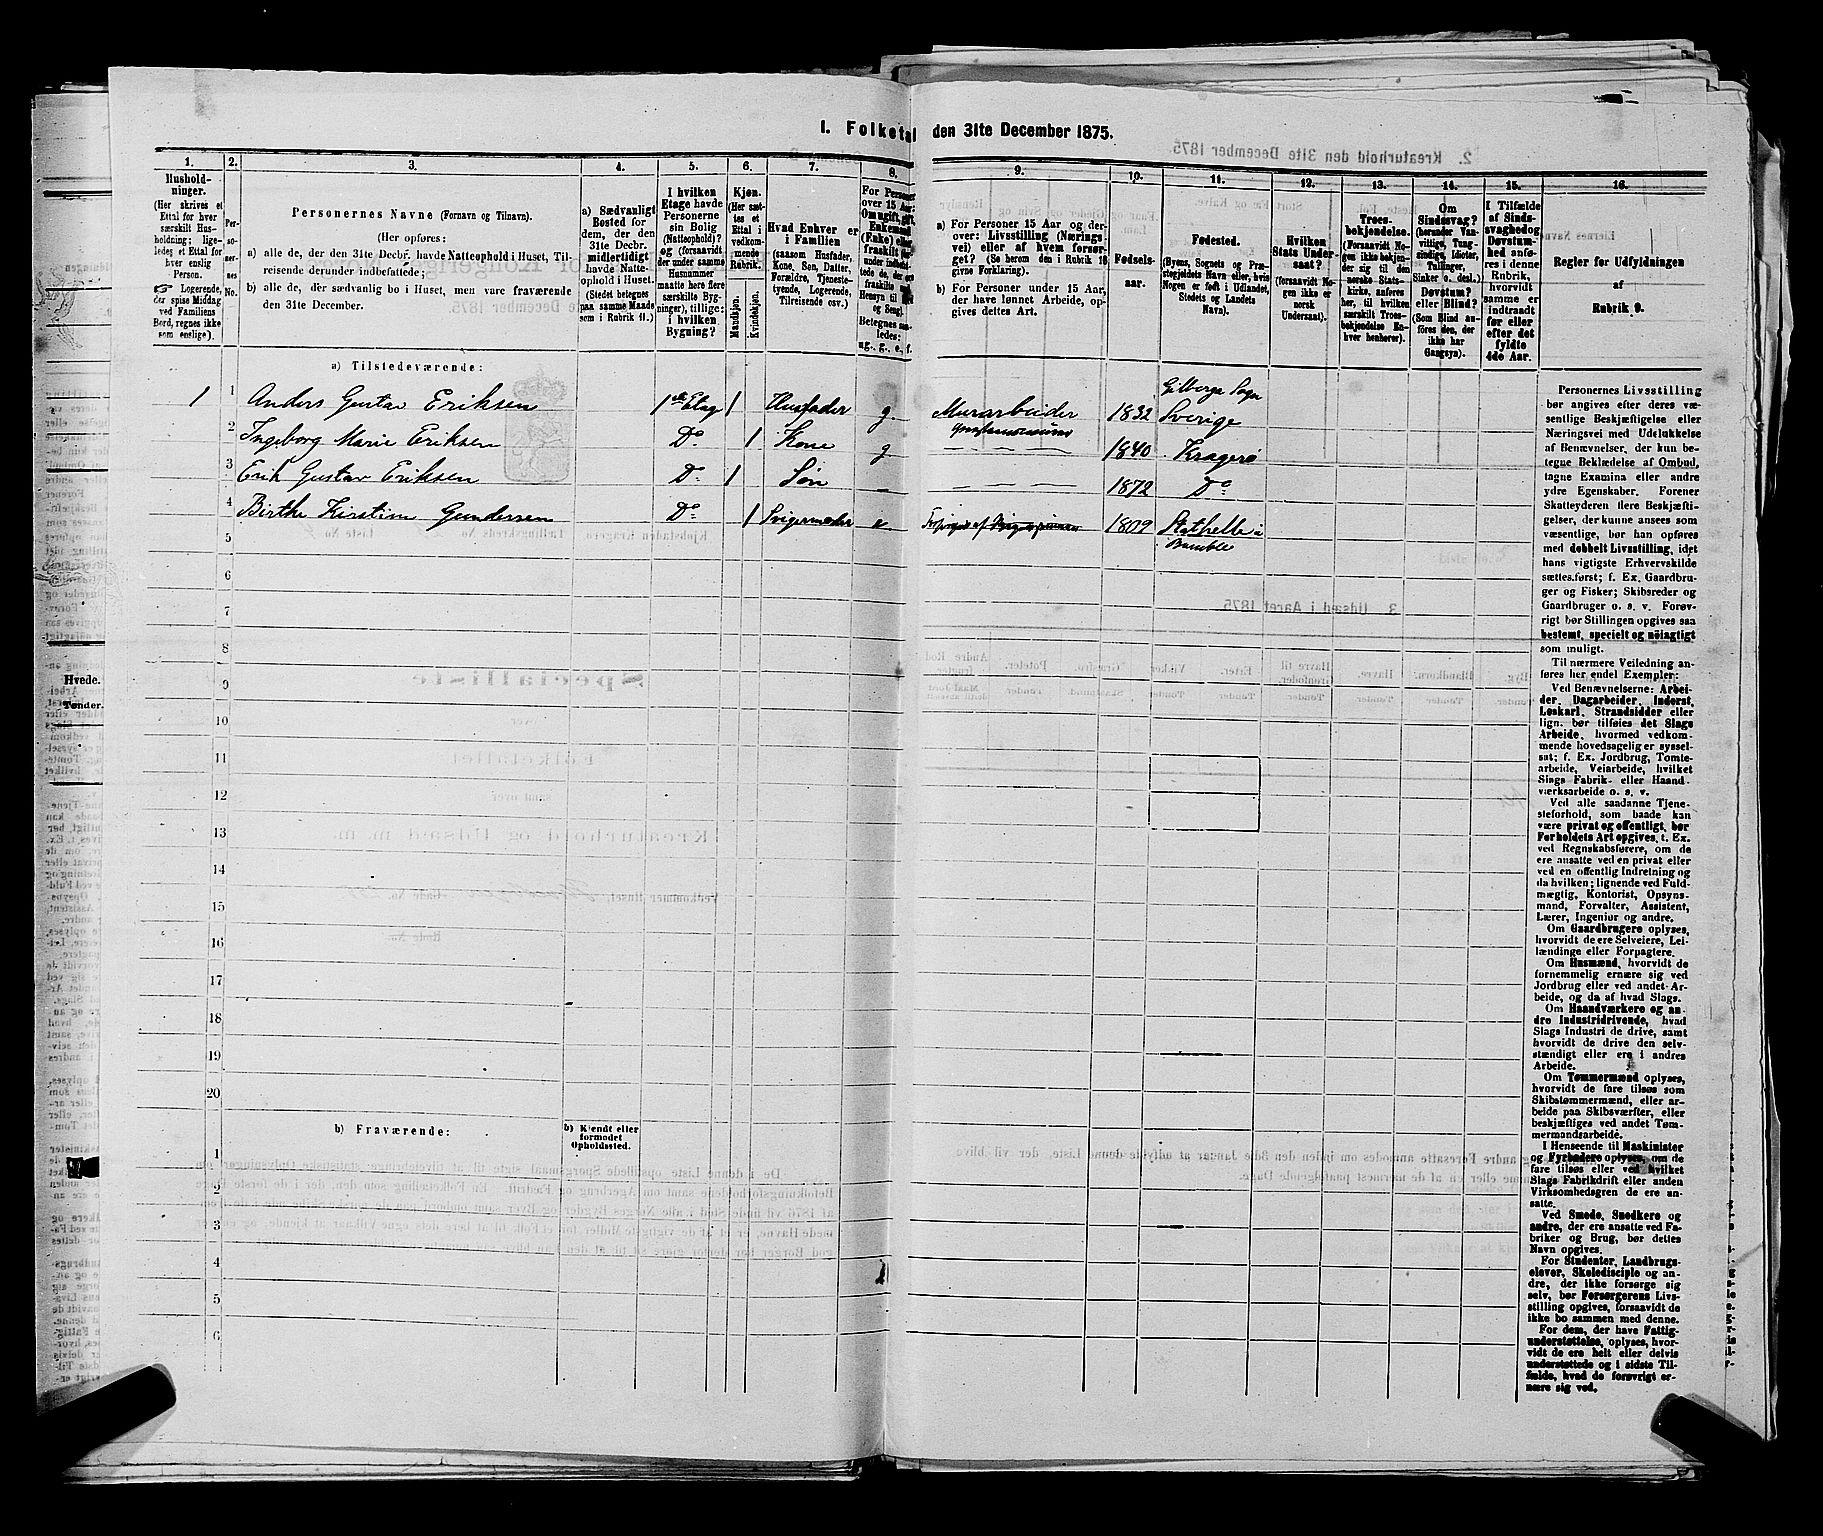 I. Folketal den 31te December 1875.
1. 2. 3. 4. 5. 6. 7. 8. 9. 10. 11. 12. 13. 14. 15. 16.
Hushold-
ninger.
(Her skrives et
Ettal for hver
særskilt Hus-
holdning; lige-
ledes et Ettal for
hver enslig
Person.
☞ Logerende,
der spise Middag
ved Familiens
Bord, regnes ikke
som enslige).
Per-
so-
ner-
nes
No.
Personernes Navne (Fornavn og Tilnavn).
(Her opføres:
a) alle de, der den 31te Decbr. havde Natteophold i Huset, Til-
reisende derunder indbefattede;
b) alle de, der sædvanlig bo i Huset, men vare fraværende
den 31te December.
a) Sædvanligt
Bosted for
dem, der den
31te Decbr.
midlertidigt
havde Natte-
ophold i Huset.
(Stedet betegnes
paa samme Maade
som i Rubrik 11.)
I hvilken
Etage havde
Personerne
sin Bolig
(Natteophold)?
og (forsaavidt
der under samme
Husnummer
maatte høre flere
særskilte Byg-
ninger), tillige:
i hvilken
Bygning?
Kjøn.
(Her sæt-
tes et
Ettal i
vedkom-
mende
Rubrik.
Mandkjøn.
Kvindekjøn.
Hvad Enhver er
i Familien
(saasom Husfader,
Kone, Søn, Datter,
Forældre, Tjeneste-
tyende, Logerende,
Tilreisende osv.)
For Personer
over 15 Aar:
Om ugift, gift,
Enkemand
(Enke) eller
fraskilt
Betegnes saa-
ledes:
ug., g., e., f.
a) For Personer 15 Aar og der-
over: Livsstilling (Nærings-
vei) eller af hvem forsør-
get? (Se herom den i Rubrik 16
givne Forklaring).
b) For Personer under 15 Aar,
der have lønnet Arbeide, op-
gives dettes Art.
Fødsels-
aar.
Fødested.
(Byens, Sognets og Præ-
stegjeldets Navn eller, hvis
Nogen er født i Udlandet,
Stedets og Landets
Navn).
Hvilken
Stats Under-
saat?
(forsaavidt No-
gen ikke er
norsk
Undersaat).
Troes-
bekjendelse.
(Forsaavidt No-
gen ikke bekjen-
der sig til den
norske Stats-
kirke, anføres
her, til hvilken
særskilt Troes-
bekjendelse En-
hver henhører).
Om
Sindssvag?
(herunder Van-
vittige, Tung-
sindige, Idioter,
Tullinger,
Sinker o. desl.)
Døvstum?
eller Blind?
(Som Blind an-
føres den, der
ikke har
Gangsyn).
I Tilfælde
af Sinds-
svaghed og
Døvstum-
hed anfø-
res i denne
Rubrik,
hvorvidt
samme er
indtraadt
før eller
efter det
fyldte
4de Aar.
Regler for Udfyldningen
af
Rubrik 9.
a) Tilstedeværende:
1 1 Anders Gustav Eriksen 1ste Etag 1 Husfader g Murarbeider 1832 Gilberga Sogn
Sverige
2 Ingeborg Marie Eriksen Do 1 Kone g 1840 Kragerø
3 Erik Gustav Eriksen Do 1 Søn 1872 Do
4 Birthe Kirstine Gundersen Do 1 Svigermoder e 1809 Stathelle i
Bamble
5
6
7
8
9
10
11
12
13
14
15
16
17
18
19
20
b) Fraværende:
b) Kjendt eller
formodet
Opholdssted.
1
2
3
4
5
6
Personernes Livsstilling
bør angives efter deres væ-
sentlige Beskjæftigelse eller
Næringsvei med Udelukkelse
af Benævnelser, der kun be-
tegne Beklædelse af Ombud,
tagne Examina eller andre
ydre Egenskaber. Forener
Skatteyderen flere Beskjæfti-
gelser, der kunne ansees som
væsentlige, bør han opføres
med dobbelt Livsstilling, idet
hans vigtigste Erhvervskilde
sættes først; f. Ex. Gaardbru-
ger og Fisker; Skibsreder og
Gaardbruger o. s. v. Forøv-
rigt bør Stillingen opgives saa
bestemt, specielt og nöiagtigt
som muligt.
Til nærmere Veiledning an-
føres her endel Exempler:
Ved Benævnelserne: Arbei-
der, Dagarbeider, Inderst,
Løskarl, Strandsidder eller
lign. bør tilføies det Slags
Arbeide, hvormed vedkom-
mende hovedsagelig er syssel-
sat; f. Ex. Jordbrug, Tomte-
arbeide, Veiarbeide, hvilket
Slags Fabrik- eller Haand-
værksarbeide o. s. v.
Ved alle saadanne Tjene-
steforhold, som baade kan
være privat og offentligt, bør
Forholdets Art opgives, t. Ex.
ved Regnskabsførere, om de
ere ansatte ved en privat eller
ved en offentlig Indretning og
da hvilken; lignende ved Fuld-
mægtig, Kontorist, Opsyns-
mand, Forvalter, Assistent,
Lærer, Ingeniør og andre.
Om Gaardbrugere oplyses,
hvorvidt de ere Selveiere, Lei-
lændinge eller Forpagtere.
Om Husmænd, hvorvidt de
fornemmelig ernære sig ved
Jordbrug eller ved andet Ar-
beide, og da af hvad Slags.
Om Haandværkere og an-
dre Industridrivende, hvad
Slags Industri de drive, samt
hvorvidt de drive den selv-
stændigt eller ere i andres
Arbeide.
Om Tømmermænd oplyses,
hvorvidt de fare tilsøs som
Skibstømmermænd, eller ar-
beide paa Skibsværfter, eller
beskjæftiges ved andet Tøm-
mermandsarbeide.
I Henseende til Maskinister
og Fyrbødere oplyses, om de
fare tilsøs eller ved hvilket
Slags Fabrikdrift eller anden
Virksomhedsgren de ere an-
satte.
Ved Smede, Snedkere og
andre, der ere ansatte ved Fa-
briker og Brug, bør dettes
Navn opgives.
For Studenter, Landbrugs-
elever, Skoledisciple og an-
dre, der ikke forsørge sig
selv, bør Forsørgerens Livs-
stilling opgives, forsaavidt de
ikke bo sammen med denne.
For dem, der have Fattig-
understøttelse, oplyses, hvor-
vidt de ere helt eller delvis
understøttede og i sidste Til-
fælde, hvad de forøvrigt er-
nære sig ved.
Hvede.
Tønder.